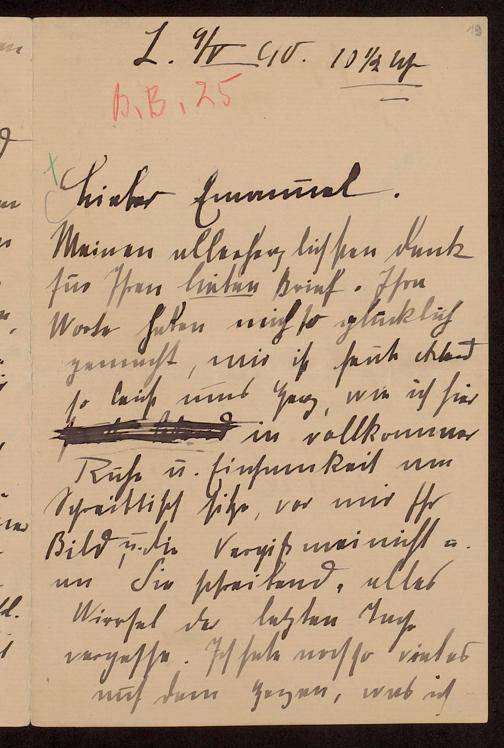 19
L. 9/V 90. 10 1/2 Uhr
B. B. 25
Lieber Emanuel.
Meinen allerherzlichsten Dank
für Ihren lieben Brief. Ihre
Worte haben mich so glücklich
gemacht, mir ist heute Abend
so leicht ums Herz, wie ich hier
in vollkommner
Ruhe u. Einsamkeit am
Schreibtisch sitze, vor mir Ihr
Bild u. die Vergißmeinnicht u.
an Sie schreibend, alles
Wirrsal der letzten Tage
vergesse. Ich habe noch so vieles
auf dem Herzen, was ich